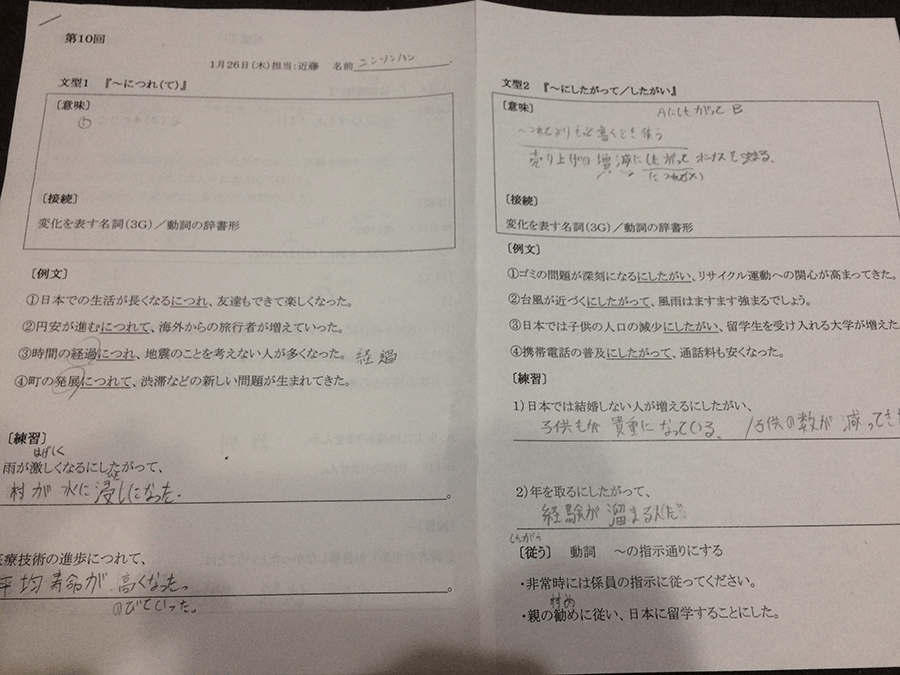 第10回
1月26日(木)担当:近藤 名前 ニンソンハン
文型1 『～につれ(て)』
〔意味〕
①
〔接続〕
変化を表す名詞(3G)/動詞の辞書形
〔例文〕
①日本での生活が長くなるにつれ、友達もできて楽しくなった。
②円安が進むにつれて、海外からの旅行者が増えていった。
③時間の経過につれ、地震のことを考えない人が多くなった。 経過
④町の発展につれて、渋滞などの新しい問題が生まれてきた。
〔練習〕
はげしく
雨が激しくなるにしたがって、
村が水に浸しになった。
療技術の進歩につれて、
平均寿命が高くなった。
のびていった。
文型2 『～にしたがって/したがい』
〔意味〕 AにしたがってB
～つれてよりもっと書くとき使う
売り上げの増減にしたがってボーナスを決める。
につれて(×)
〔接続〕
変化を表す名詞(3G)/動詞の辞書形
〔例文〕
①ゴミの問題が深刻になるにしたがい、リサイクル運動への関心が高まってきた。
②台風が近づくにしたがって、風雨はますます強まるでしょう。
③日本では子供の人口の減少にしたがい、留学生を受け入れる大学が増えた
④携帯電話の普及にしたがって、通話料も安くなった。
〔練習〕
1)日本では結婚しない人が増えるにしたがい、
子供もが貴重になっている。 /子供の数が減ってき
2)年を取るにしたがって、
経験が溜まる
したがう
〔従う〕 動詞 ～の指示通りにする
・非常時には係員の指示に従ってください。
・親の勧めに従い、日本に留学することにした。